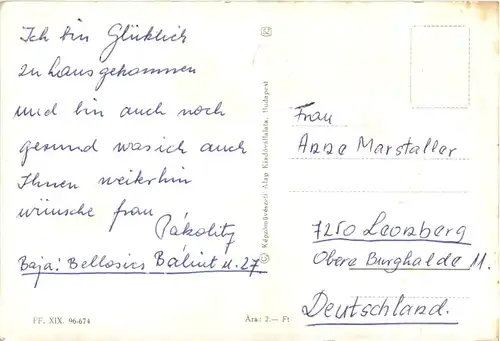 Ich bin Glücklich
zu haus gekommen
und bin auch noch
gesund was ich auch
Ihnen weiterhin
wünsche frau
Pákolitz
Baja: Bellosics Bálint u. 27
FF. XIX. 96-674
Ára: 2.— Ft
© Képzőművészeti Alap Kiadóvállalata, Budapest
Frau
Anna Marstaller
7250 Leonberg
Obere Burghalde 11.
Deutschland.